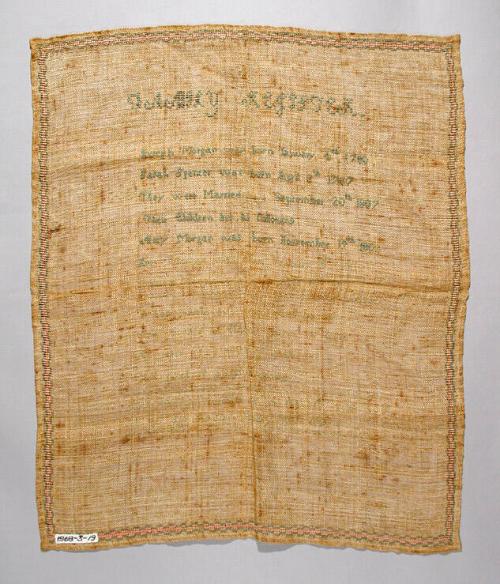 FAMILY REGISTER.
Morgan was born January 4th 1780
Sarah Spencer was born Sept
They were Married September 20th 1807
Children are as follows
Mary Morgan was born November 19th
1968-3-19